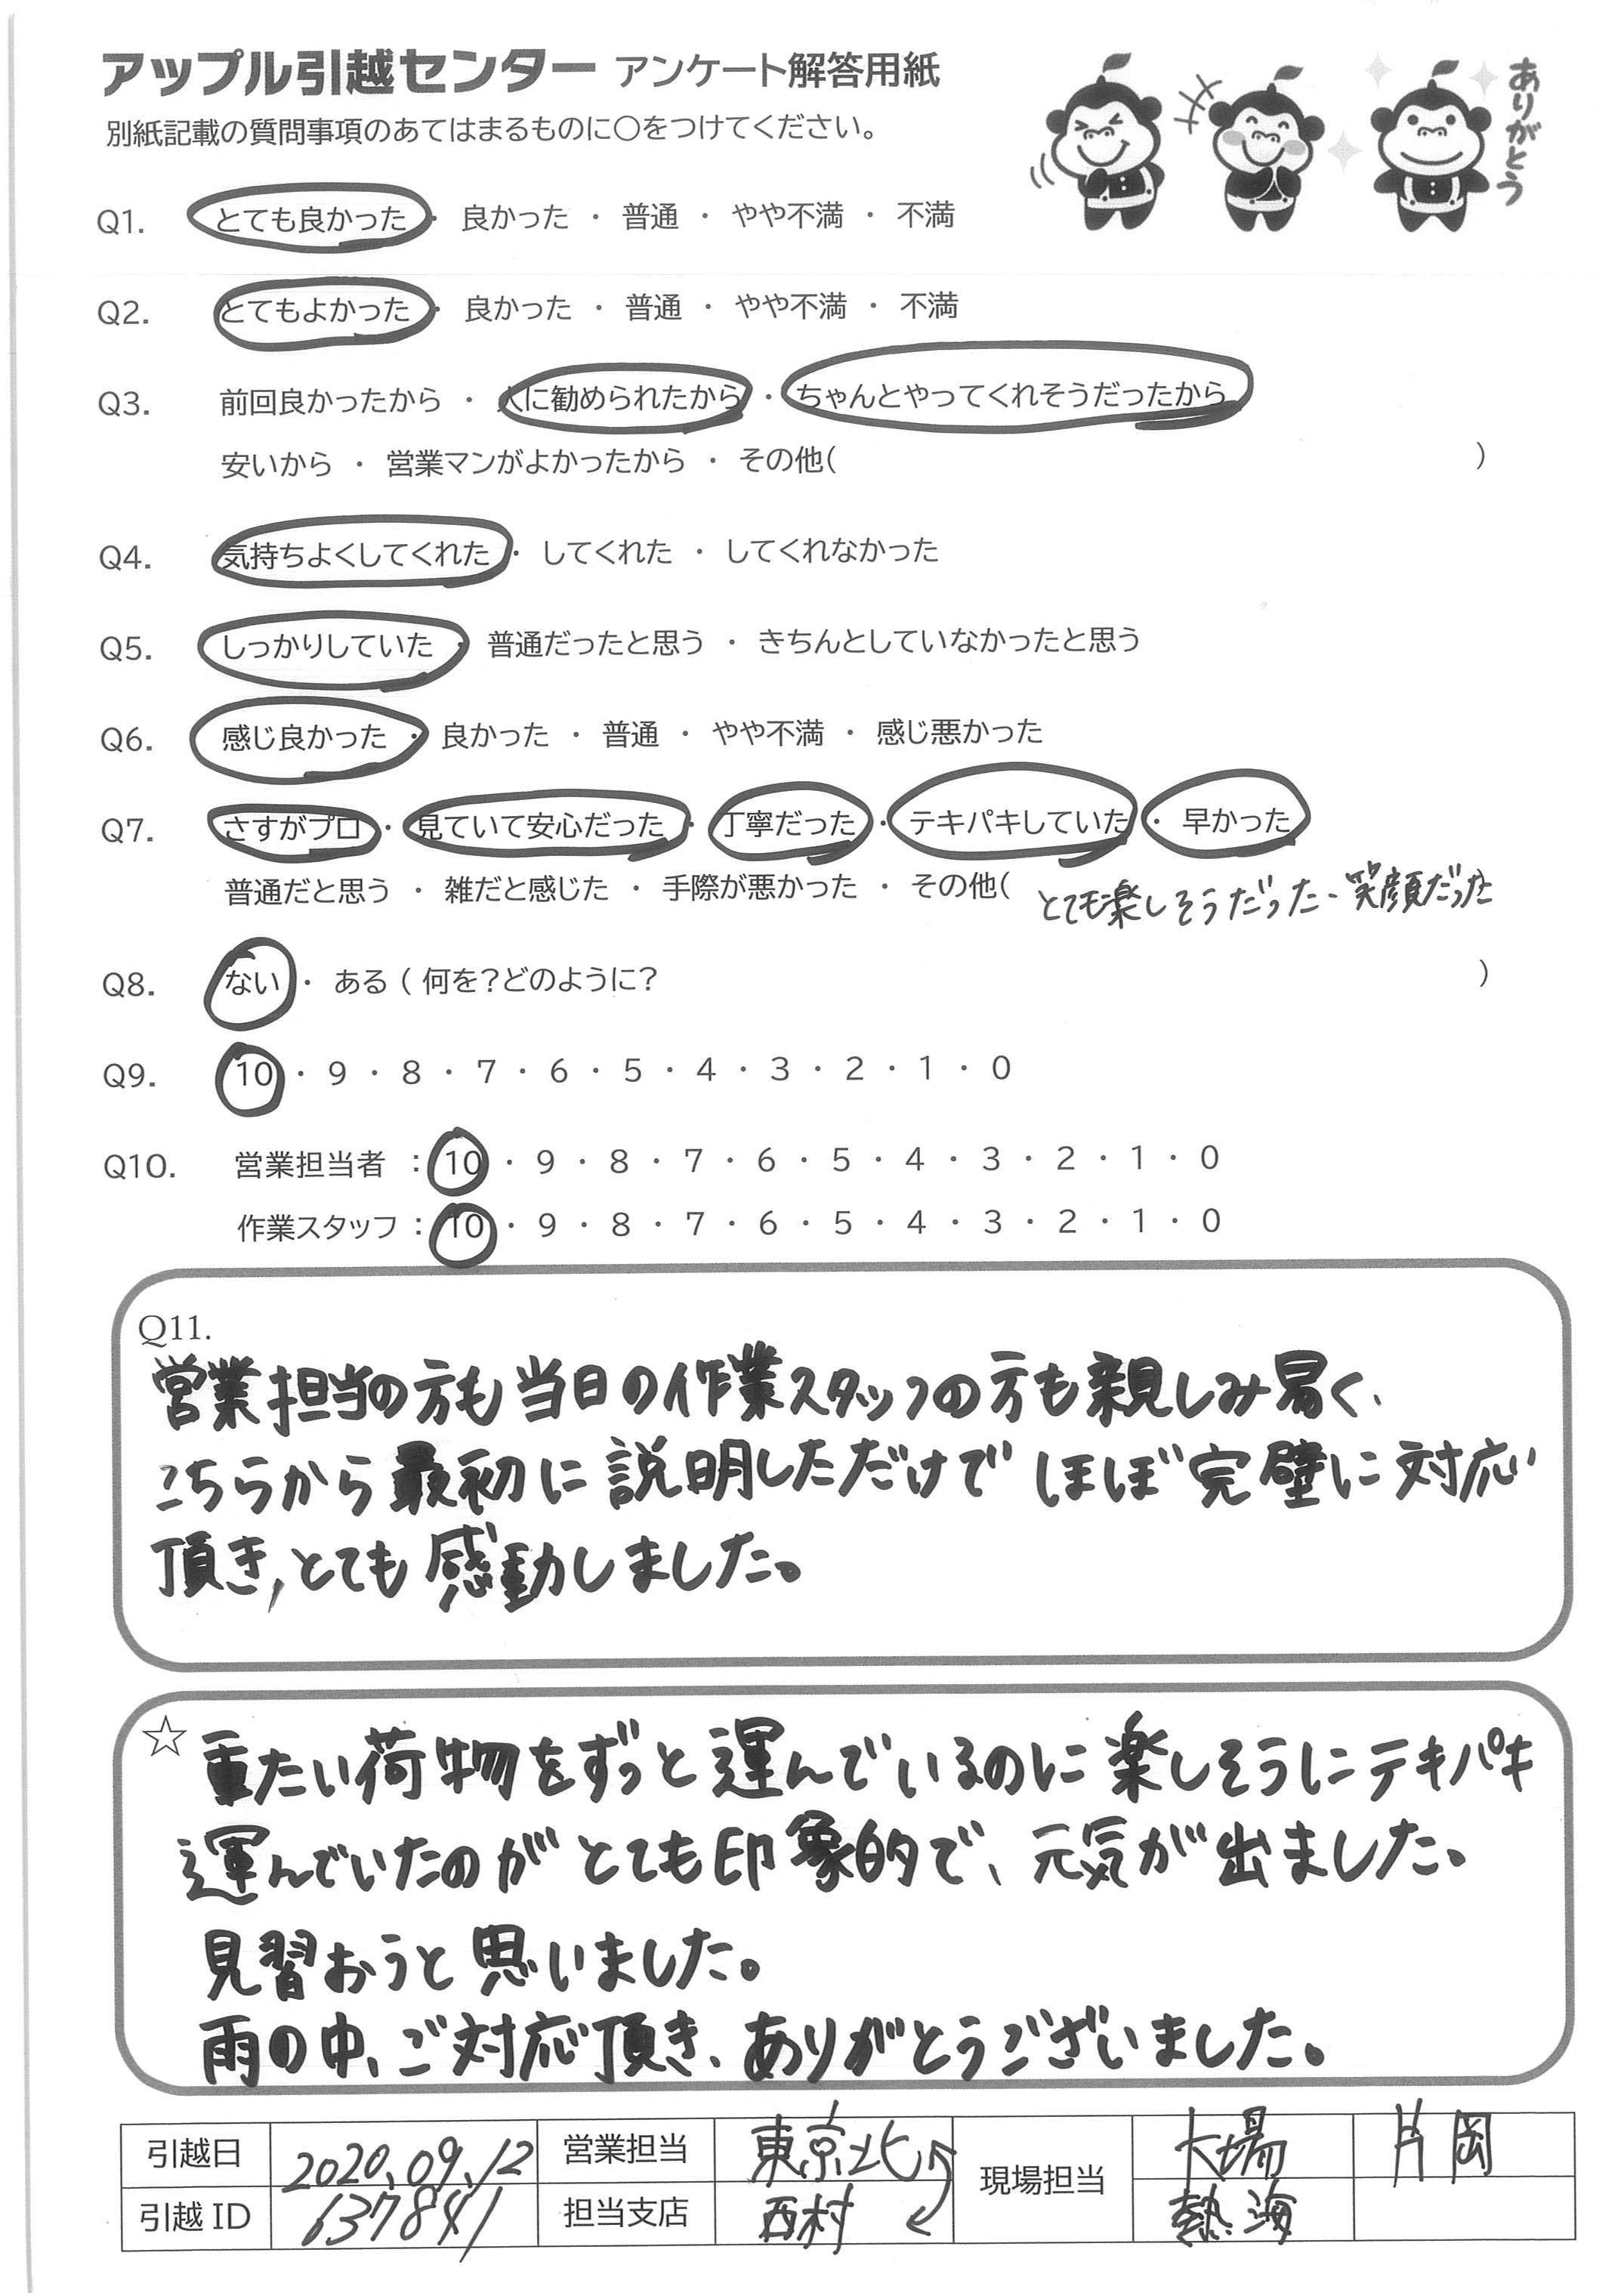 アップル引越センター アンケート解答用紙
ありがとう
別紙記載の質問事項のあてはまるものに○をつけてください。
Q1. とても良かった ・ 良かった ・ 普通 ・ やや不満 ・ 不満
Q2. とてもよかった ・ 良かった ・ 普通 ・ やや不満 ・ 不満
Q3. 前回良かったから ・ 人に勧められたから ・ ちゃんとやってくれそうだったから
安いから ・ 営業マンがよかったから ・ その他( )
Q4. 気持ちよくしてくれた ・ してくれた ・ してくれなかった
Q5. しっかりしていた ・ 普通だったと思う ・ きちんとしていなかったと思う
Q6. 感じ良かった ・ 良かった ・ 普通 ・ やや不満 ・ 感じ悪かった
Q7. さすがプロ ・ 見ていて安心だった ・ 丁寧だった ・ テキパキしていた ・ 早かった
普通だと思う ・ 雑だと感じた ・ 手際が悪かった ・ その他( とても楽しそうだった・笑顔だった
Q8. ない ・ ある ( 何を?どのように? )
Q9. 10 ・ 9 ・ 8 ・ 7 ・ 6 ・ 5 ・ 4 ・ 3 ・ 2 ・ 1 ・ 0
Q10. 営業担当者 : 10 ・ 9 ・ 8 ・ 7 ・ 6 ・ 5 ・ 4 ・ 3 ・ 2 ・ 1 ・ 0
作業スタッフ : 10 ・ 9 ・ 8 ・ 7 ・ 6 ・ 5 ・ 4 ・ 3 ・ 2 ・ 1 ・ 0
Q11.
営業担当の方も当日の作業スタッフの方も親しみ易く、
こちらから最初に説明しただけでほぼ完璧に対応
頂き、とても感動しました。
☆ 重たい荷物をずっと運んでいるのに楽しそうにテキパキ
運んでいたのがとても印象的で、元気が出ました。
見習おうと思いました。
雨の中、ご対応頂き、ありがとうございました。
引越日 2020.09.12 営業担当 東京北 現場担当 大場 片岡
引越ID 137841 担当支店 西村 熱海